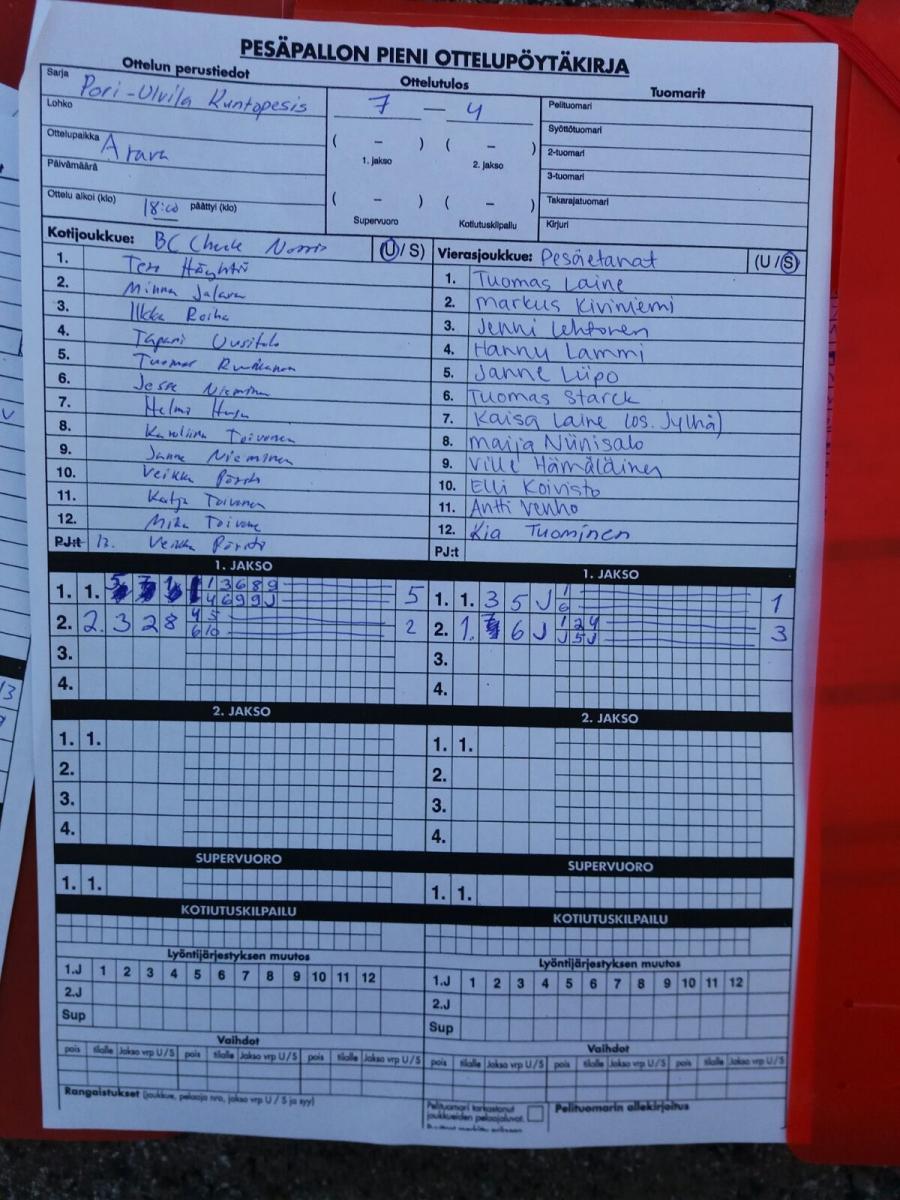 PESÄPALLON PIENI OTTELUPÖYTÄKIRJA
Ottelun perustiedot
Ottelutulos
Tuomarit
Sarja Pori-Ulvila Kuntopesis
Lohko
Ottelupaikka Arava
Päivämäärä
Ottelu alkoi (klo) 18:00 päättyi (klo)
7 – 4
( – ) ( – )
1. jakso 2. jakso
( – ) ( – )
Supervuoro Kotiutuskilpailu
Pelituomari
Syöttötuomari
2-tuomari
3-tuomari
Takarajatuomari
Kirjuri
Kotijoukkue: BC Chuck Norris (U/S)
1. Tero
2. Minna Jalava
3. Ilkka Roiha
4. Tapani Uusitalo
5. Tuomas
6. Jesse Nieminen
7. Helmi
8. Karoliina Toivonen
9. Janne Nieminen
10. Veikko
11. Katja Toivonen
12. Mika Toivonen
PJ:t 12. Veikko
Vierasjoukkue: Pesäetanat (U/S)
1. Tuomas Laine
2. Markus Kiviniemi
3. Jenni Lehtonen
4. Hannu Lammi
5. Janne Liipo
6. Tuomas Starck
7. Kaisa Laine (os. Jylhä)
8. Maija Niinisalo
9. Ville Hämäläinen
10. Elli Koivisto
11. Antti Venho
12. Kia Tuominen
PJ:t
1. JAKSO
1. 1. 1 3 6 8 9 5
4 6 9 9 J
2. 2. 3 2 8 4 5 2
6 10
3.
4.
2. JAKSO
1. 1.
2.
3.
4.
SUPERVUORO
1. 1.
KOTIUTUSKILPAILU
Lyöntijärjestyksen muutos
1.J 1 2 3 4 5 6 7 8 9 10 11 12
2.J
Sup
Vaihdot
pois tilalle Jakso vrp U/S pois tilalle Jakso vrp U/S pois tilalle Jakso vrp U/S
Rangaistukset (joukkue, pelaaja nro, jakso vrp U / S ja syy)
1. JAKSO
1. 1. 3 5 J 1 1
6
2. 1. 6 J 1 2 4 3
J 5 J
3.
4.
2. JAKSO
1. 1.
2.
3.
4.
SUPERVUORO
1. 1.
KOTIUTUSKILPAILU
Lyöntijärjestyksen muutos
1.J 1 2 3 4 5 6 7 8 9 10 11 12
2.J
Sup
Vaihdot
pois tilalle Jakso vrp U/S pois tilalle Jakso vrp U/S pois tilalle Jakso vrp U/S
Pelituomari tarkastanut
joukkueiden pelaajaluvat.
Pelituomarin allekirjoitus